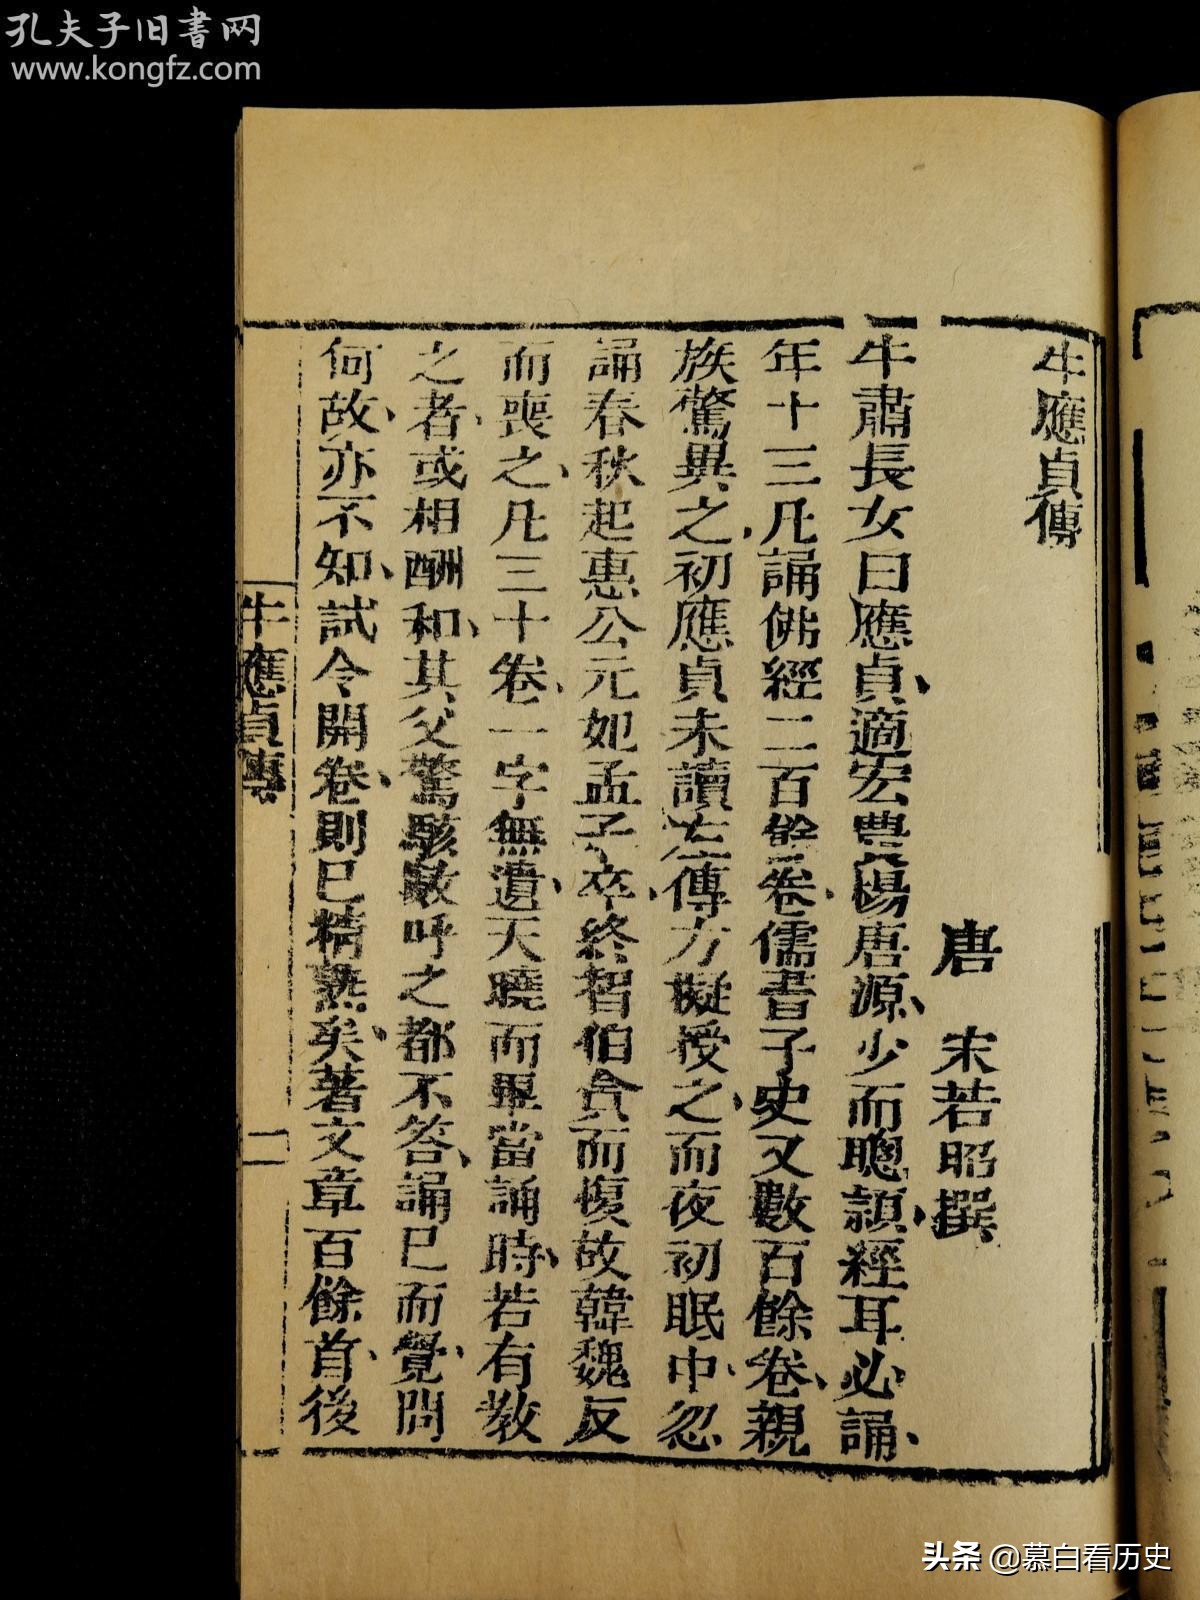 孔夫子旧書网
www.kongfz.com
牛應貞傳
唐　宋若昭撰
牛肅長女曰應貞、適宏農楊唐源、少而聰穎、經耳必誦、
年十三、凡誦佛經二百餘卷、儒書子史又數百餘卷、親
族驚異之、初應貞未讀左傳、方擬授之、而夜初眠中、忽
誦春秋、起惠公元妃孟子卒、終智伯貪而愎、故韓魏反
而喪之、凡三十卷、一字無遺、天曉而畢、當誦時、若有教
之者、或相酬和、其父驚駭、數呼之、都不答、誦已而覺、問
何故、亦不知、試令開卷、則已精熟矣、著文章百餘首、後
牛應貞傳
一
头条 @慕白看历史